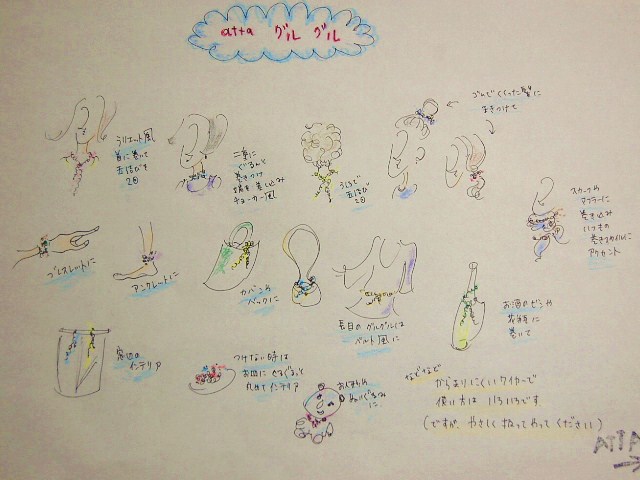 atta グルグル
ラリエット風
首に巻いて
玉結びを
2回
二重に
ぐるんと
巻きつけ
端を差し込み
チョーカー風
うしろで
玉結び
2回
ゴムでくくった髪に
まきつけて
スカーフや
マフラーに
巻き込み
いつもの
巻きスタイルに
アクセント
ブレスレットに
アンクレットに
カバンや
バックに
長目のグルグルは
ベルト風に
お酒のビンや
花瓶に
巻いて
窓辺の
インテリア
つけない時は
お皿に
丸めてインテリア
ぬいぐるみ
に
などなど
からまりにくいワイヤーで
使い方は いろいろです
(ですが、やさしく扱ってやってください)
ATTA